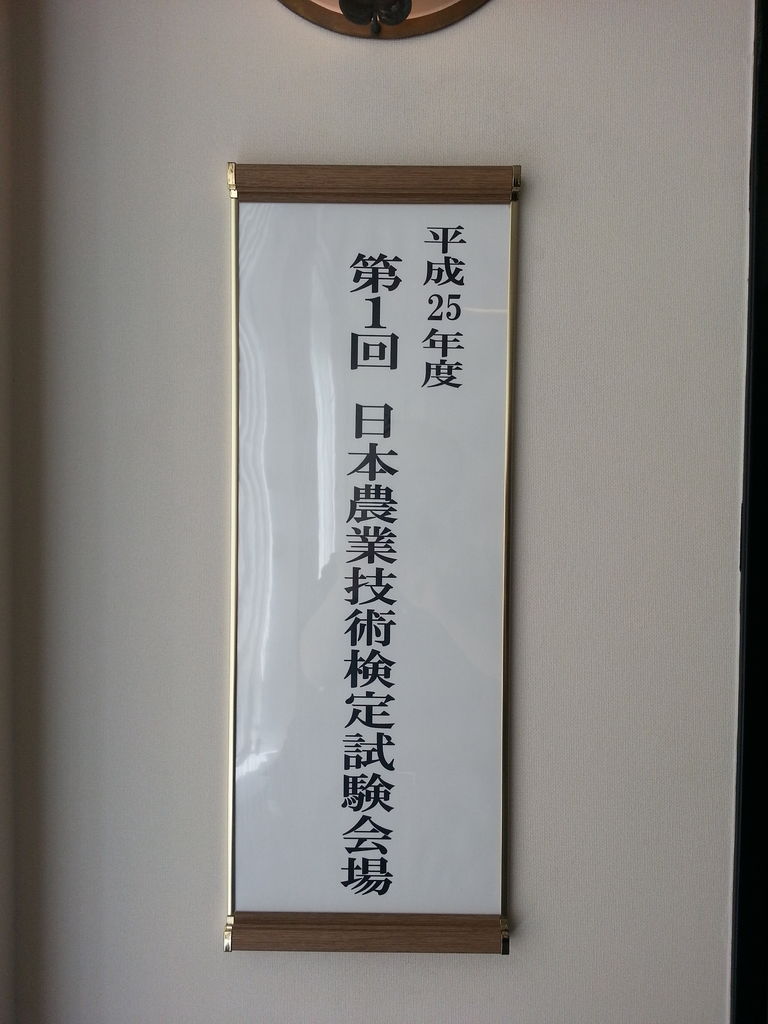 平成25年度
第1回 日本農業技術検定試験会場